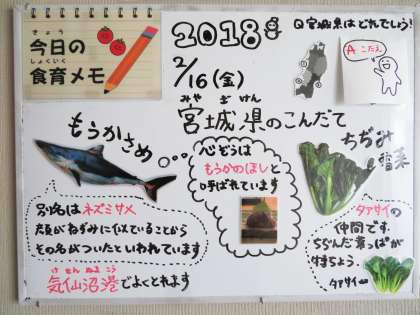 きょう
今日の
しょくいく
食育メモ
2018年
2/16(金)
Q宮城県はどれでしょう?
A こたえ
みやぎけん
宮城県のこんだて
もうかさめ
心ぞうは
もうかのほし と
呼ばれています
ちぢみ
雪菜
別名は ネズミサメ
顔がねずみに似ていることから
その名がついたといわれています
けせんぬまこう
気仙沼港でよくとれます
タアサイの
仲間です。
ちぢんだ葉っぱが
特ちょう。
タアサイ